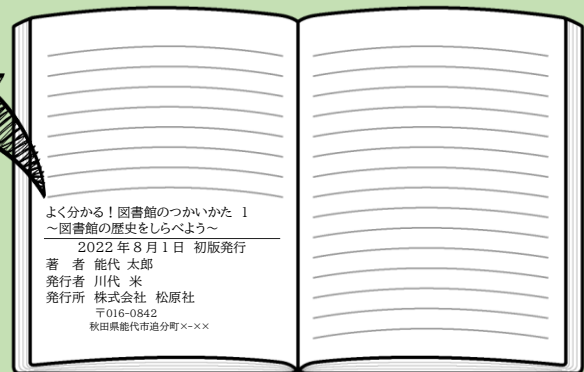 よく分かる！図書館のつかいかた 1
～図書館の歴史をしらべよう～
2022年8月1日 初版発行
著　者 能代 太郎
発行者 川代 米
発行所 株式会社 松原社
〒016-0842
秋田県能代市追分町×-××